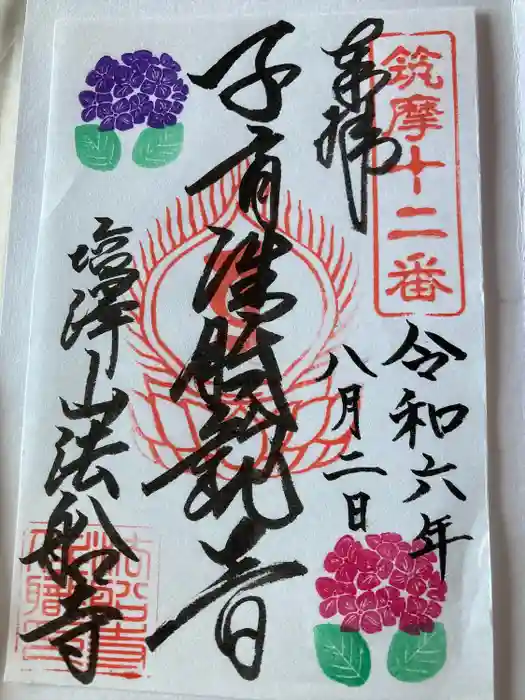 筑摩十二番
奉拝
令和六年
八月二日
子育准胝観音
塩澤山法船寺
法船寺